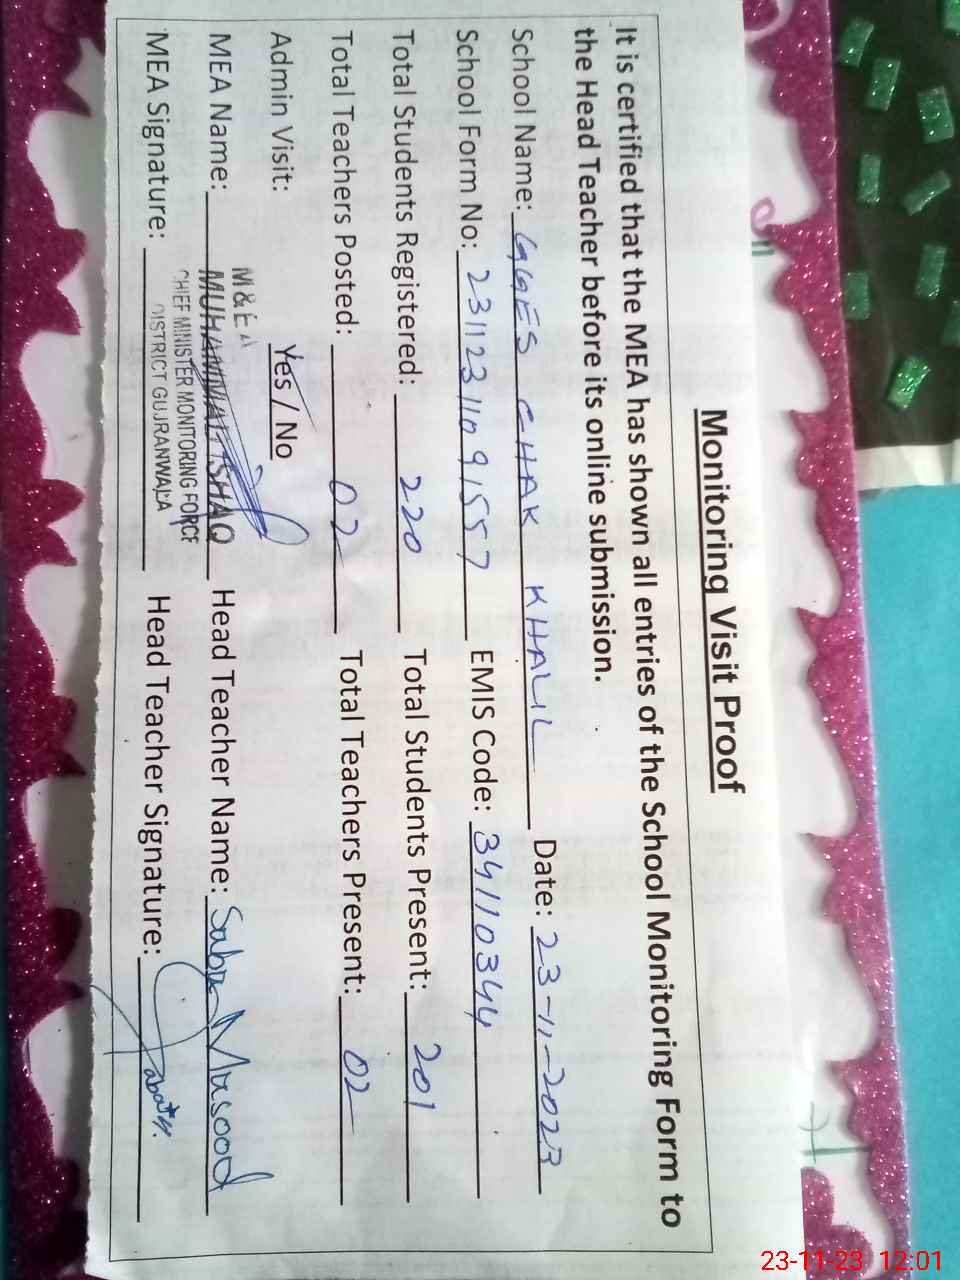 Monitoring Visit Proof
It is certified that the MEA has shown all entries of the School Monitoring Form to
the Head Teacher before its online submission.
School Name: GGES CHAK KHALIL Date: 23-11-2023
School Form No: 231123110 91557 EMIS Code: 34110344
Total Students Registered: 220 Total Students Present: 201
Total Teachers Posted: 02 Total Teachers Present: 02
Admin Visit: Yes / No
M & E A
MEA Name: MUHAMMAD ISHAQ Head Teacher Name: Saba Masood
CHIEF MINISTER MONITORING FORCE
DISTRICT GUJRANWALA
MEA Signature: Head Teacher Signature:
23-11-23 12:01